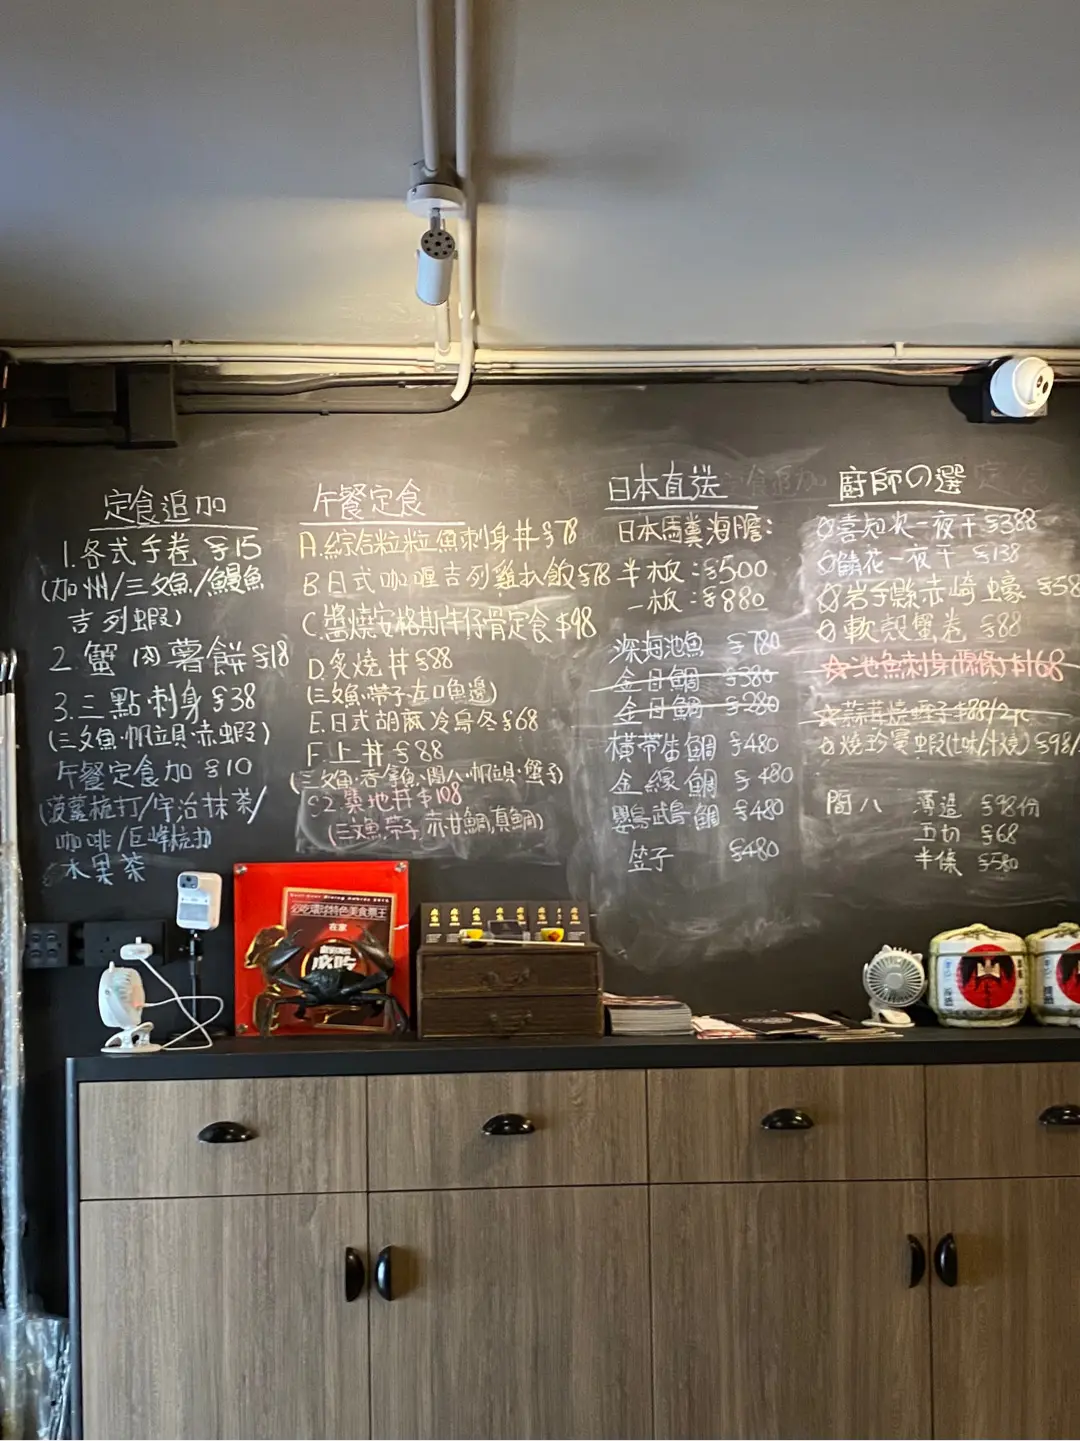 定食追加
1.各式手卷 $15
(加州/三文魚/鰻魚
吉列蝦)
2.蟹肉薯餅 $18
3.三點刺身 $38
(三文魚·帆立貝·赤蝦)
午餐定食加 $10
(菠蘿梳打/宇治抹茶/
咖啡/巨峰梳打
水果茶
午餐定食
A.綜合粒粒魚刺身丼 $78
B.日式咖喱吉列雞扒飯 $78
C.醬燒安格斯牛仔骨定食 $98
D.炙燒丼 $88
(三文魚·帶子·左口魚邊)
E.日式胡麻冷烏冬 $68
F.上丼 $88
(三文魚·吞拿魚·間八·帆立貝·蟹子)
丼 $108
(三文魚,帶子,赤甘鯛,真鯛)
日本直送
日本馬糞海膽:
半板:$500
一板:$880
深海池魚 $780
金目鯛 $380
金目鯛 $280
橫帶笛鯛 $480
金線鯛 $480
鸚鵡鯛 $480
笠子 $480
廚師の選
喜知次一夜干 $388
一夜干 $138
岩手縣赤崎蠔 $58
軟殼蟹卷 $88
☆池魚刺身(原條) $168
☆蒜茸燒蟶子 $88/2pc
燒珍寶蝦 $98/
間八 薄造 $98份
五切 $68
半條 $580
必吃環球特色美食熱王
在家
必吃